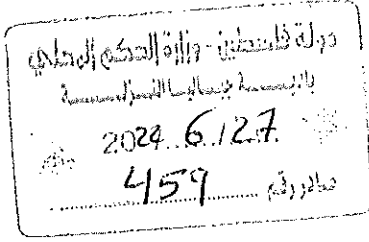 دولة فلسطين - وزارة الحكم المحلي
بلديـــة جباليا النزلـــــة
2024 6 / 27
صادر رقم 459